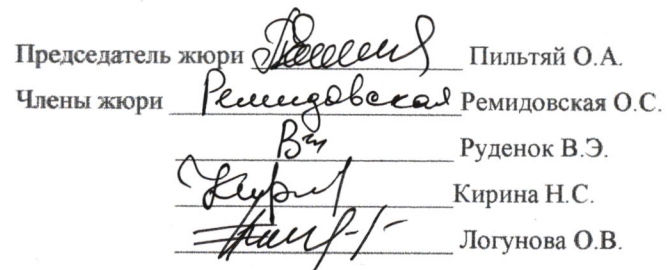 Председатель жюри Пильтяй О.А.
Члены жюри Ремидовская Ремидовская О.С.
Руденок В.Э.
Кирина Н.С.
Логунова О.В.